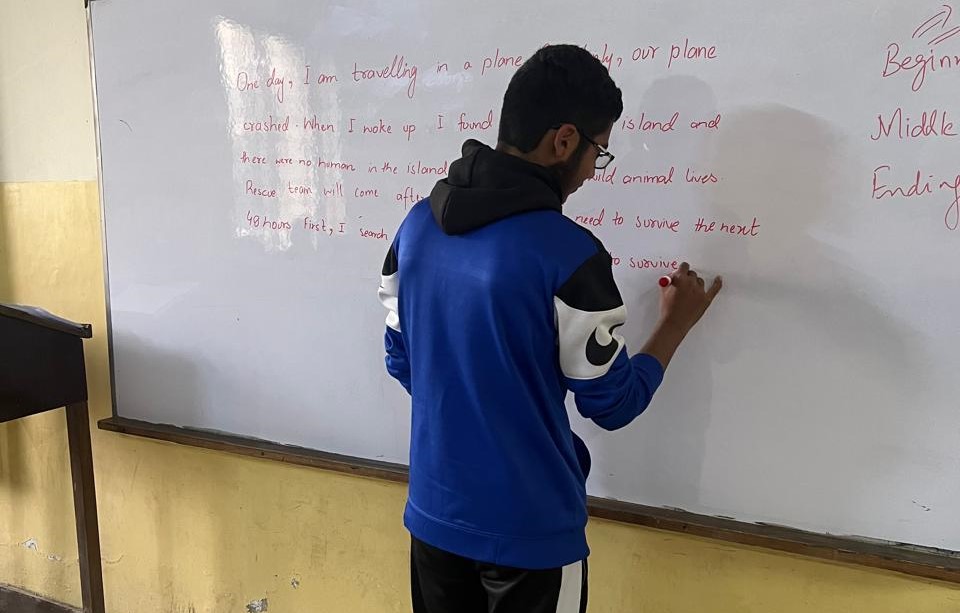 One day, I am travelling in a plane our plane
crashed. When I woke up I found island and
there were no human in the island wild animal lives.
Rescue team will come need to survive the next
48 hours First, I search to survive
Beginn
Middle
Ending